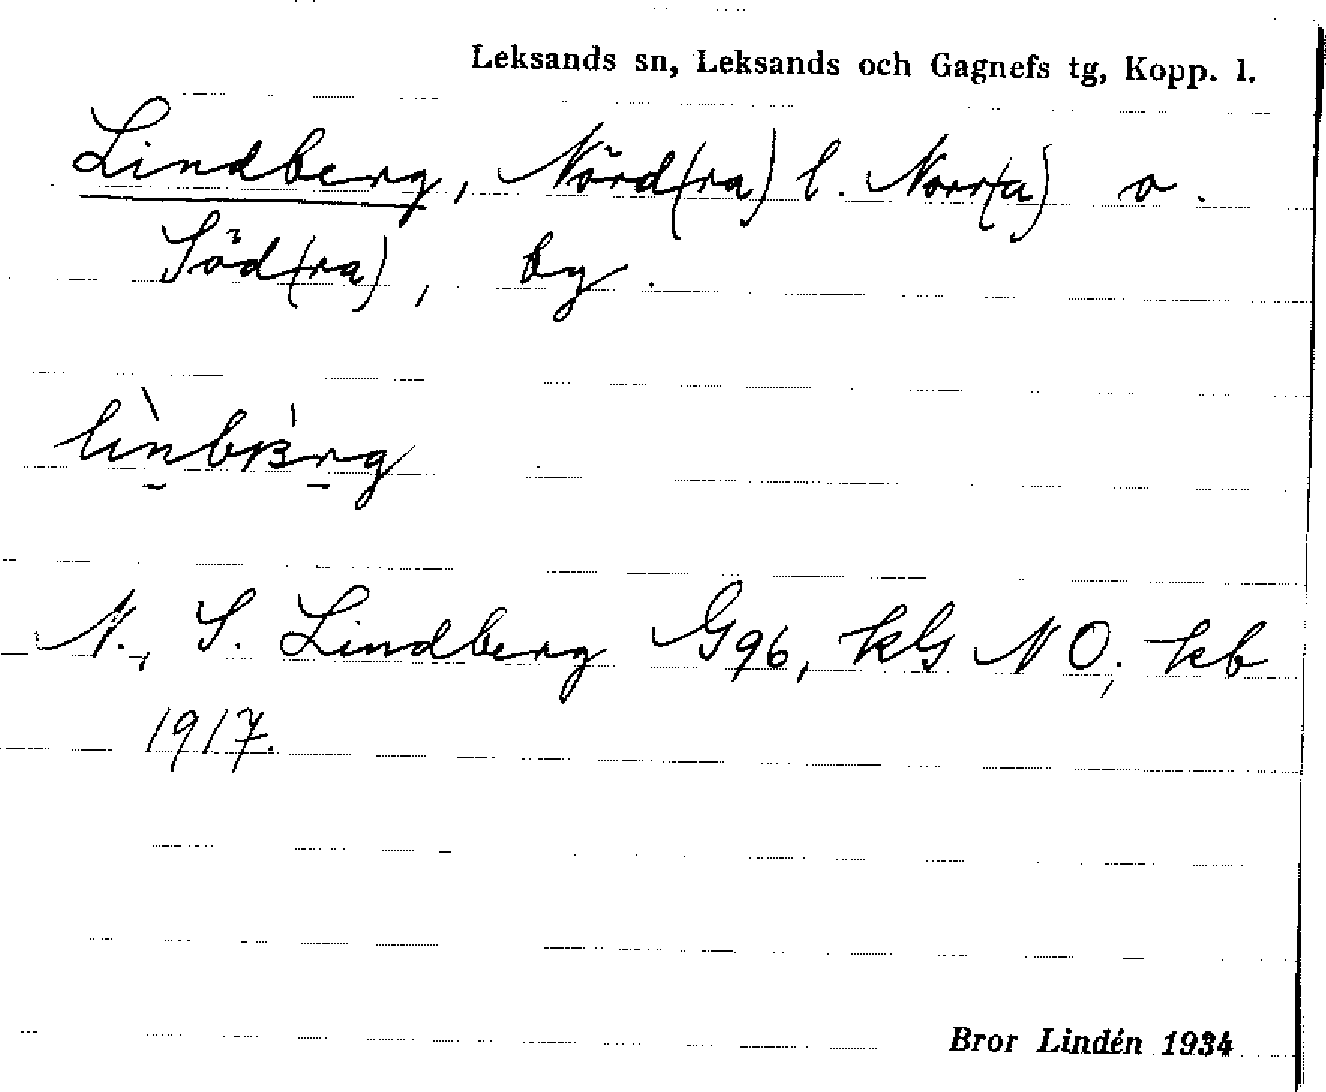 Leksands sn, Leksands och Gagnefs tg, Kopp. l.
Lindberg, Nörd(ra) l. Norr(a) o.
Söd(ra), by.
N., S. Lindberg G96, kG NO; kb
1917.
Bror Lindén 1934